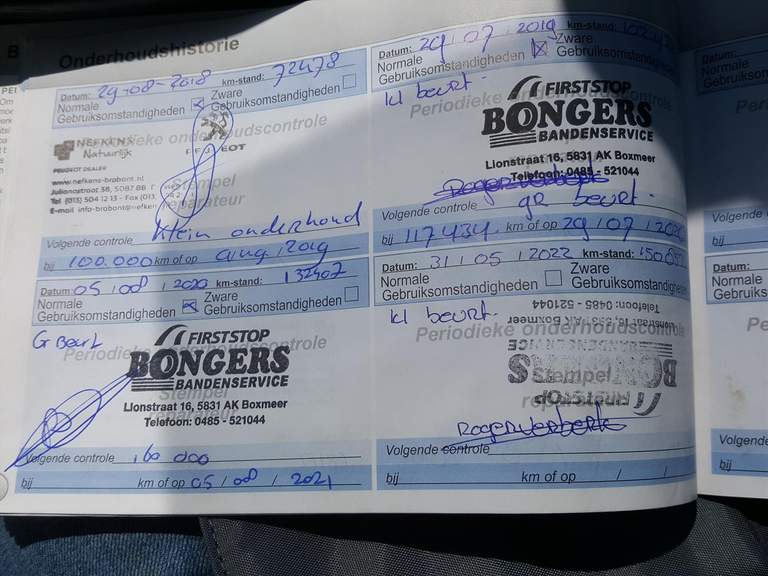 Onderhoudshistorie
Datum: 29-08-2018 km-stand: 72478
Normale Zware
Gebruiksomstandigheden Gebruiksomstandigheden
Periodieke onderhoudscontrole
NEFKENS
Natuurlijk
PEUGEOT
PEUGEOT DEALER
www.nefkens-brabant.nl
Julianastraat 38, 5087 BB
Tel (013) 504 12 13 - Fax (013)
E-mail info-brabant@nefken
Stempel
reparateur
Klein onderhoud
Volgende controle
bij 100.000 km of op aug/2019
Datum: 29/07/2019 km-stand:
Normale Zware
Gebruiksomstandigheden Gebruiksomstandigheden
kl beurt.
Periodieke
FIRSTSTOP
BONGERS
BANDENSERVICE
Lionstraat 16, 5831 AK Boxmeer
Telefoon: 0485 - 521044
Volgende controle gr beurt.
bij 117434 km of op 29/07/2020
Datum: 05/08/2020 km-stand: 132407
Normale Zware
Gebruiksomstandigheden Gebruiksomstandigheden
G Beurt
Periodieke onderhoudscontrole
FIRSTSTOP
BONGERS
BANDENSERVICE
Stempel
Lionstraat 16, 5831 AK Boxmeer
reparateur
Telefoon: 0485 - 521044
Volgende controle 160 000
bij km of op 05/08/2021
Datum: 31/05/2022 km-stand:
Normale Zware
Gebruiksomstandigheden Gebruiksomstandigheden
kl beurt.
Telefoon: 0485 - 521044
Lionstraat 16, 5831 AK Boxmeer
Periodieke onderhoudscontrole
BONGERS
Stempel
FIRSTSTOP
reparateur
Volgende controle
bij km of op / /
Datum:
Normale
Gebruiksom
Volgende
bij